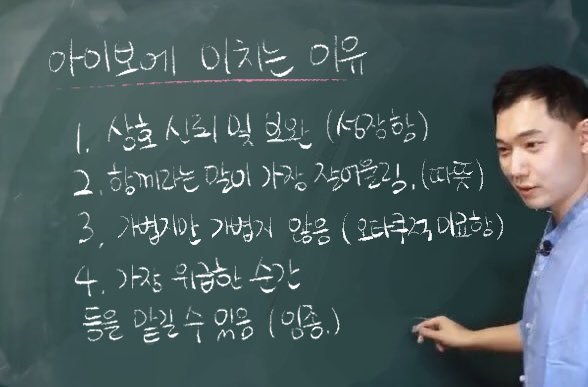 아이보에 미치는 이유
1. 상호 신뢰 및 보완 (성장함)
2. 함께라는 말이 가장 잘어울림. (따뜻)
3. 가볍지만 가볍지 않음 (오타쿠적 미묘함)
4. 가장 위급한 순간
등을 맡길 수 있음 (임종.)